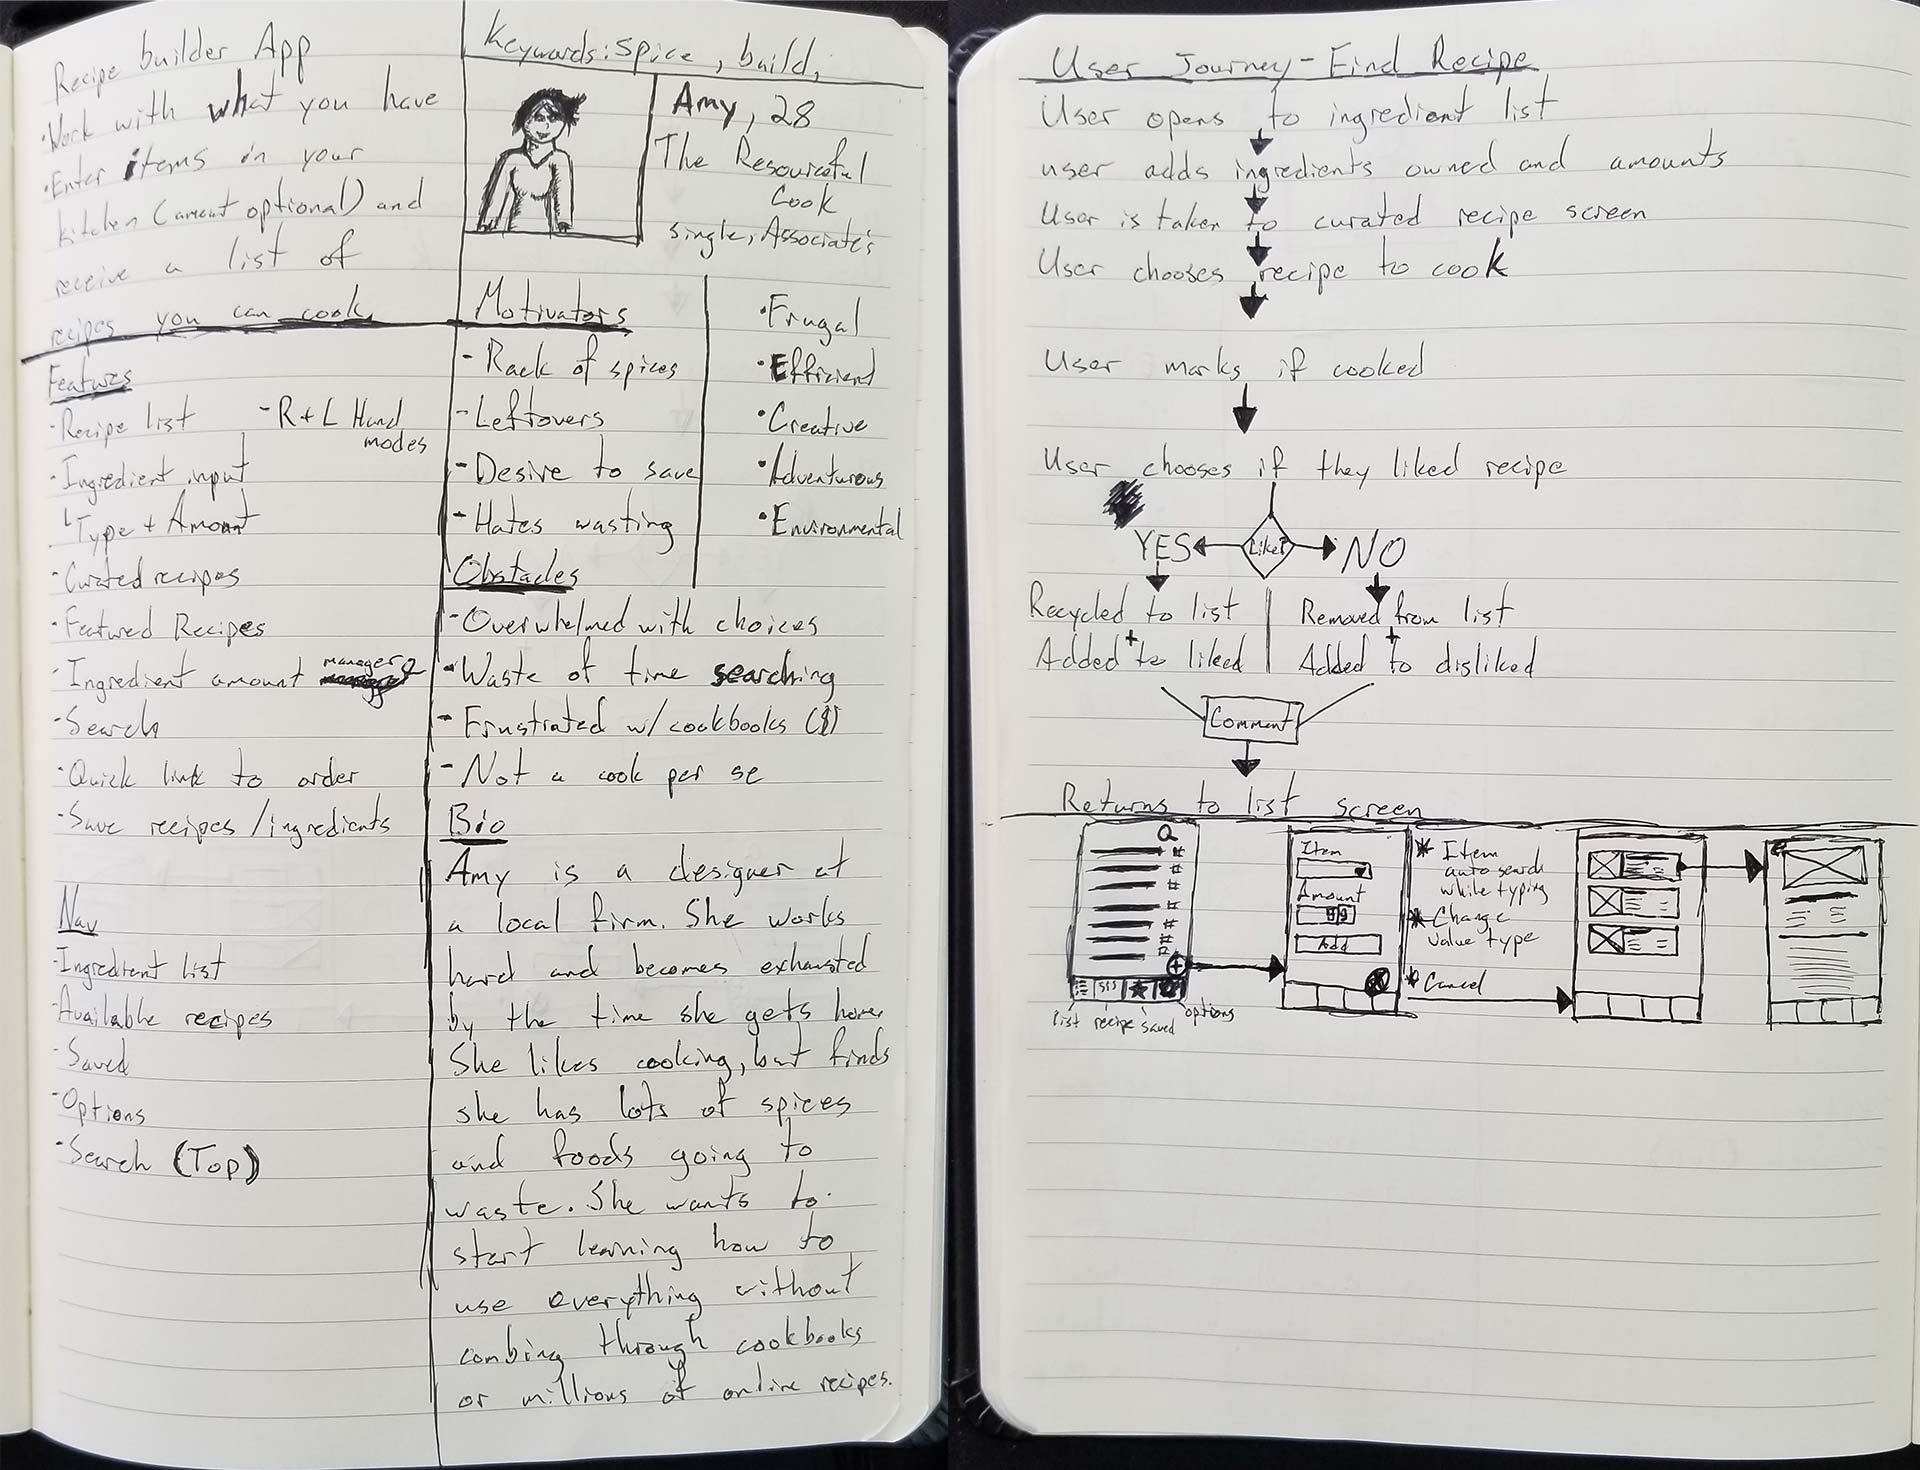 Recipe builder App
·Work with what you have
·Enter items in your
kitchen (amount optional) and
receive a list of
recipes you can cook
Features
-Recipe list
-R+L Hand
modes
-Ingredient input
Type + Amount
-Curated recipes
-Featured Recipes
-Ingredient amount manager
-Search
-Quick link to order
-Save recipes/ingredients
Nav
-Ingredient list
-Available recipes
-Saved
-Options
-Search (Top)
Keywords: spice, build,
Amy, 28
The Resourceful
Cook
single, Associate's
Motivators
- Rack of spices
- Leftovers
- Desire to save
- Hates wasting
·Frugal
·Efficient
·Creative
·Adventurous
·Environmental
Obstacles
- Overwhelmed with choices
- Waste of time searching
- Frustrated w/ cookbooks ($)
- Not a cook per se
Bio
Amy is a designer at
a local firm. She works
hard and becomes exhausted
by the time she gets home
She likes cooking, but finds
she has lots of spices
and foods going to
waste. She wants to
start learning how to
use everything without
combing through cookbooks
or millions of online recipes.
User Journey - Find Recipe
User opens to ingredient list
user adds ingredients owned and amounts
User is taken to curated recipe screen
User chooses recipe to cook
User marks if cooked
User chooses if they liked recipe
YES
Like?
NO
Recycled to list
+
Added to liked
Removed from list
+
Added to disliked
Comment
Returns to list screen
#
#
#
#
#
#
#
+
list recipe saved options
Item
Amount
Add
X
* Item
auto search
while typing
* Change
value type
* Cancel